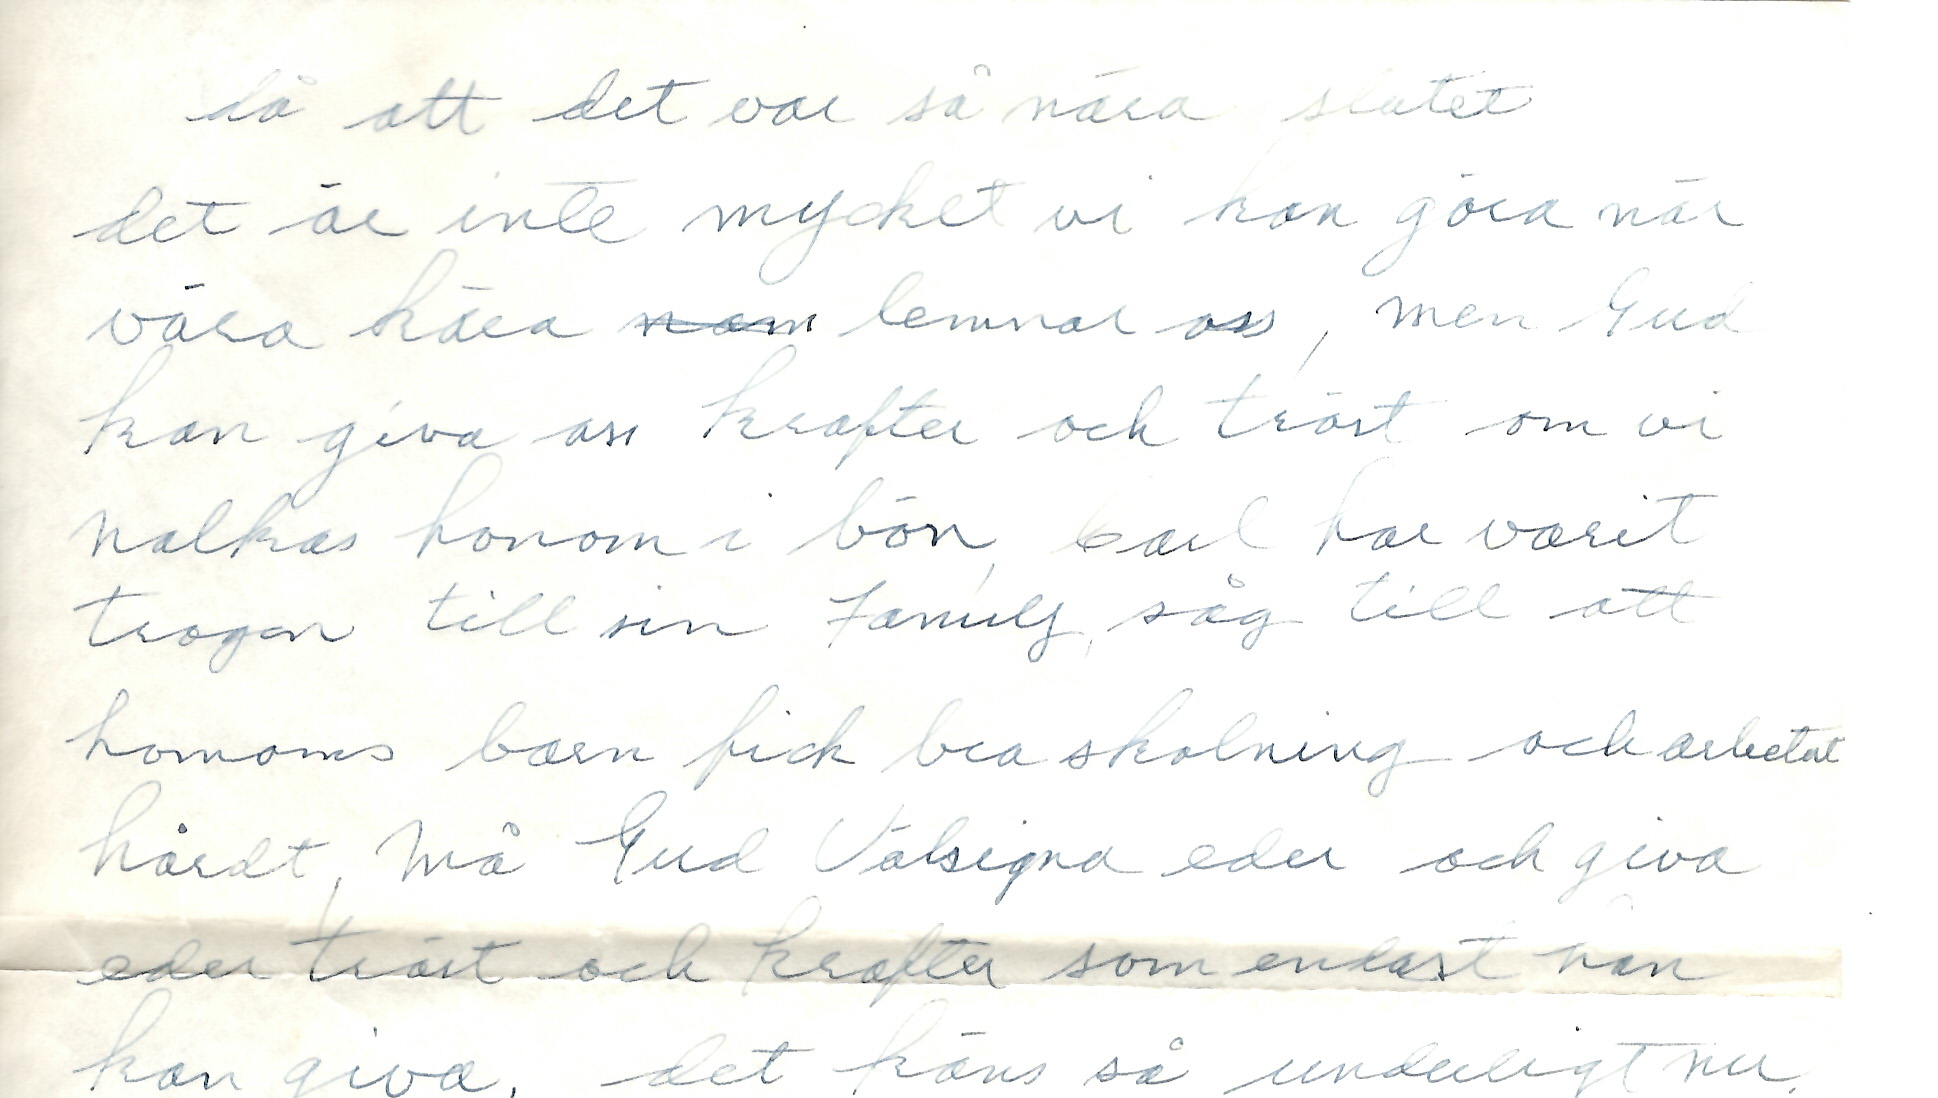 då att det var så nära slutet
det är inte mycket vi kan göra när
våra kära lemnar oss, men Gud
kan giva oss krafter och tröst om vi
nalkas honom i bön, Carl har varit
trogen till sin Familj, såg till att
honoms barn fick bra skolning och arbetat
hårdt, Må Gud Välsigna eder och giva
eder tröst och krafter som endast han
kan giva, det käns så underligt nu,